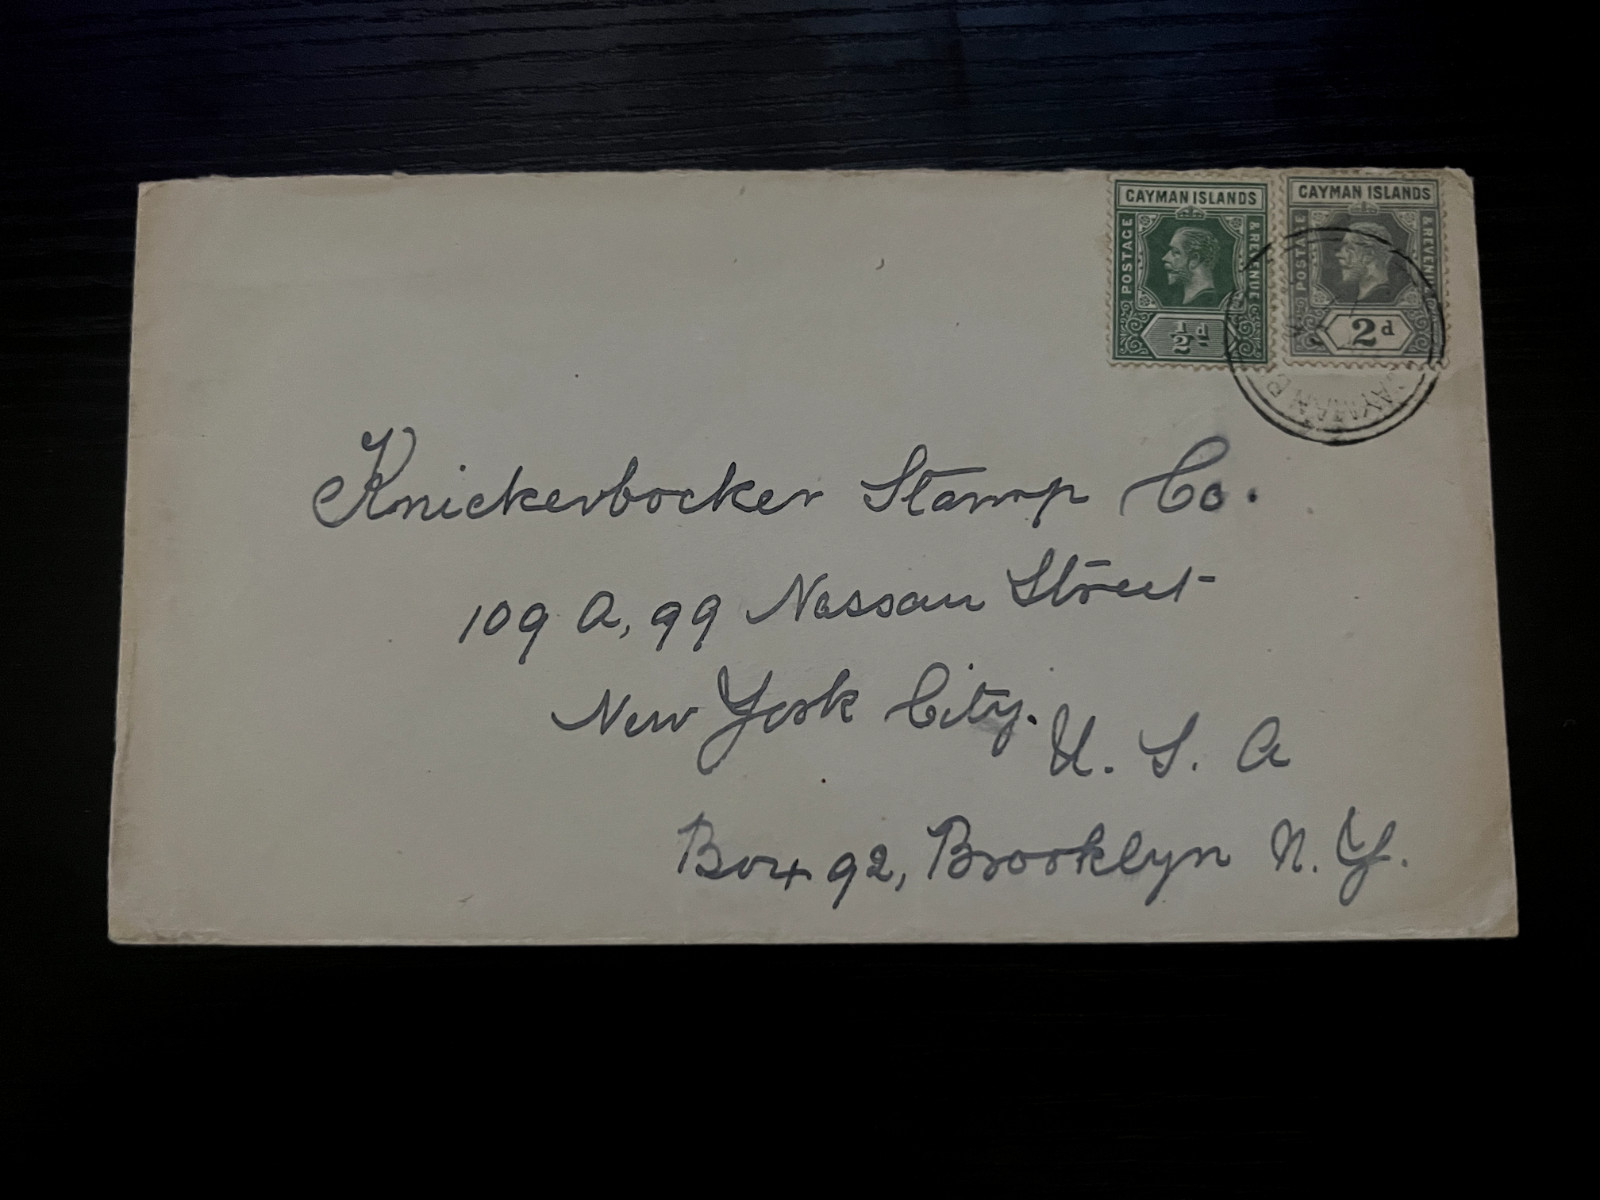 CAYMAN ISLANDS
POSTAGE & REVENUE
½d
CAYMAN ISLANDS
POSTAGE & REVENUE
2d
CAYMAN B
Knickerbocker Stamp Co.
109 A, 99 Nassau Street
New York City.
U. S. A
Box 92, Brooklyn N. Y.